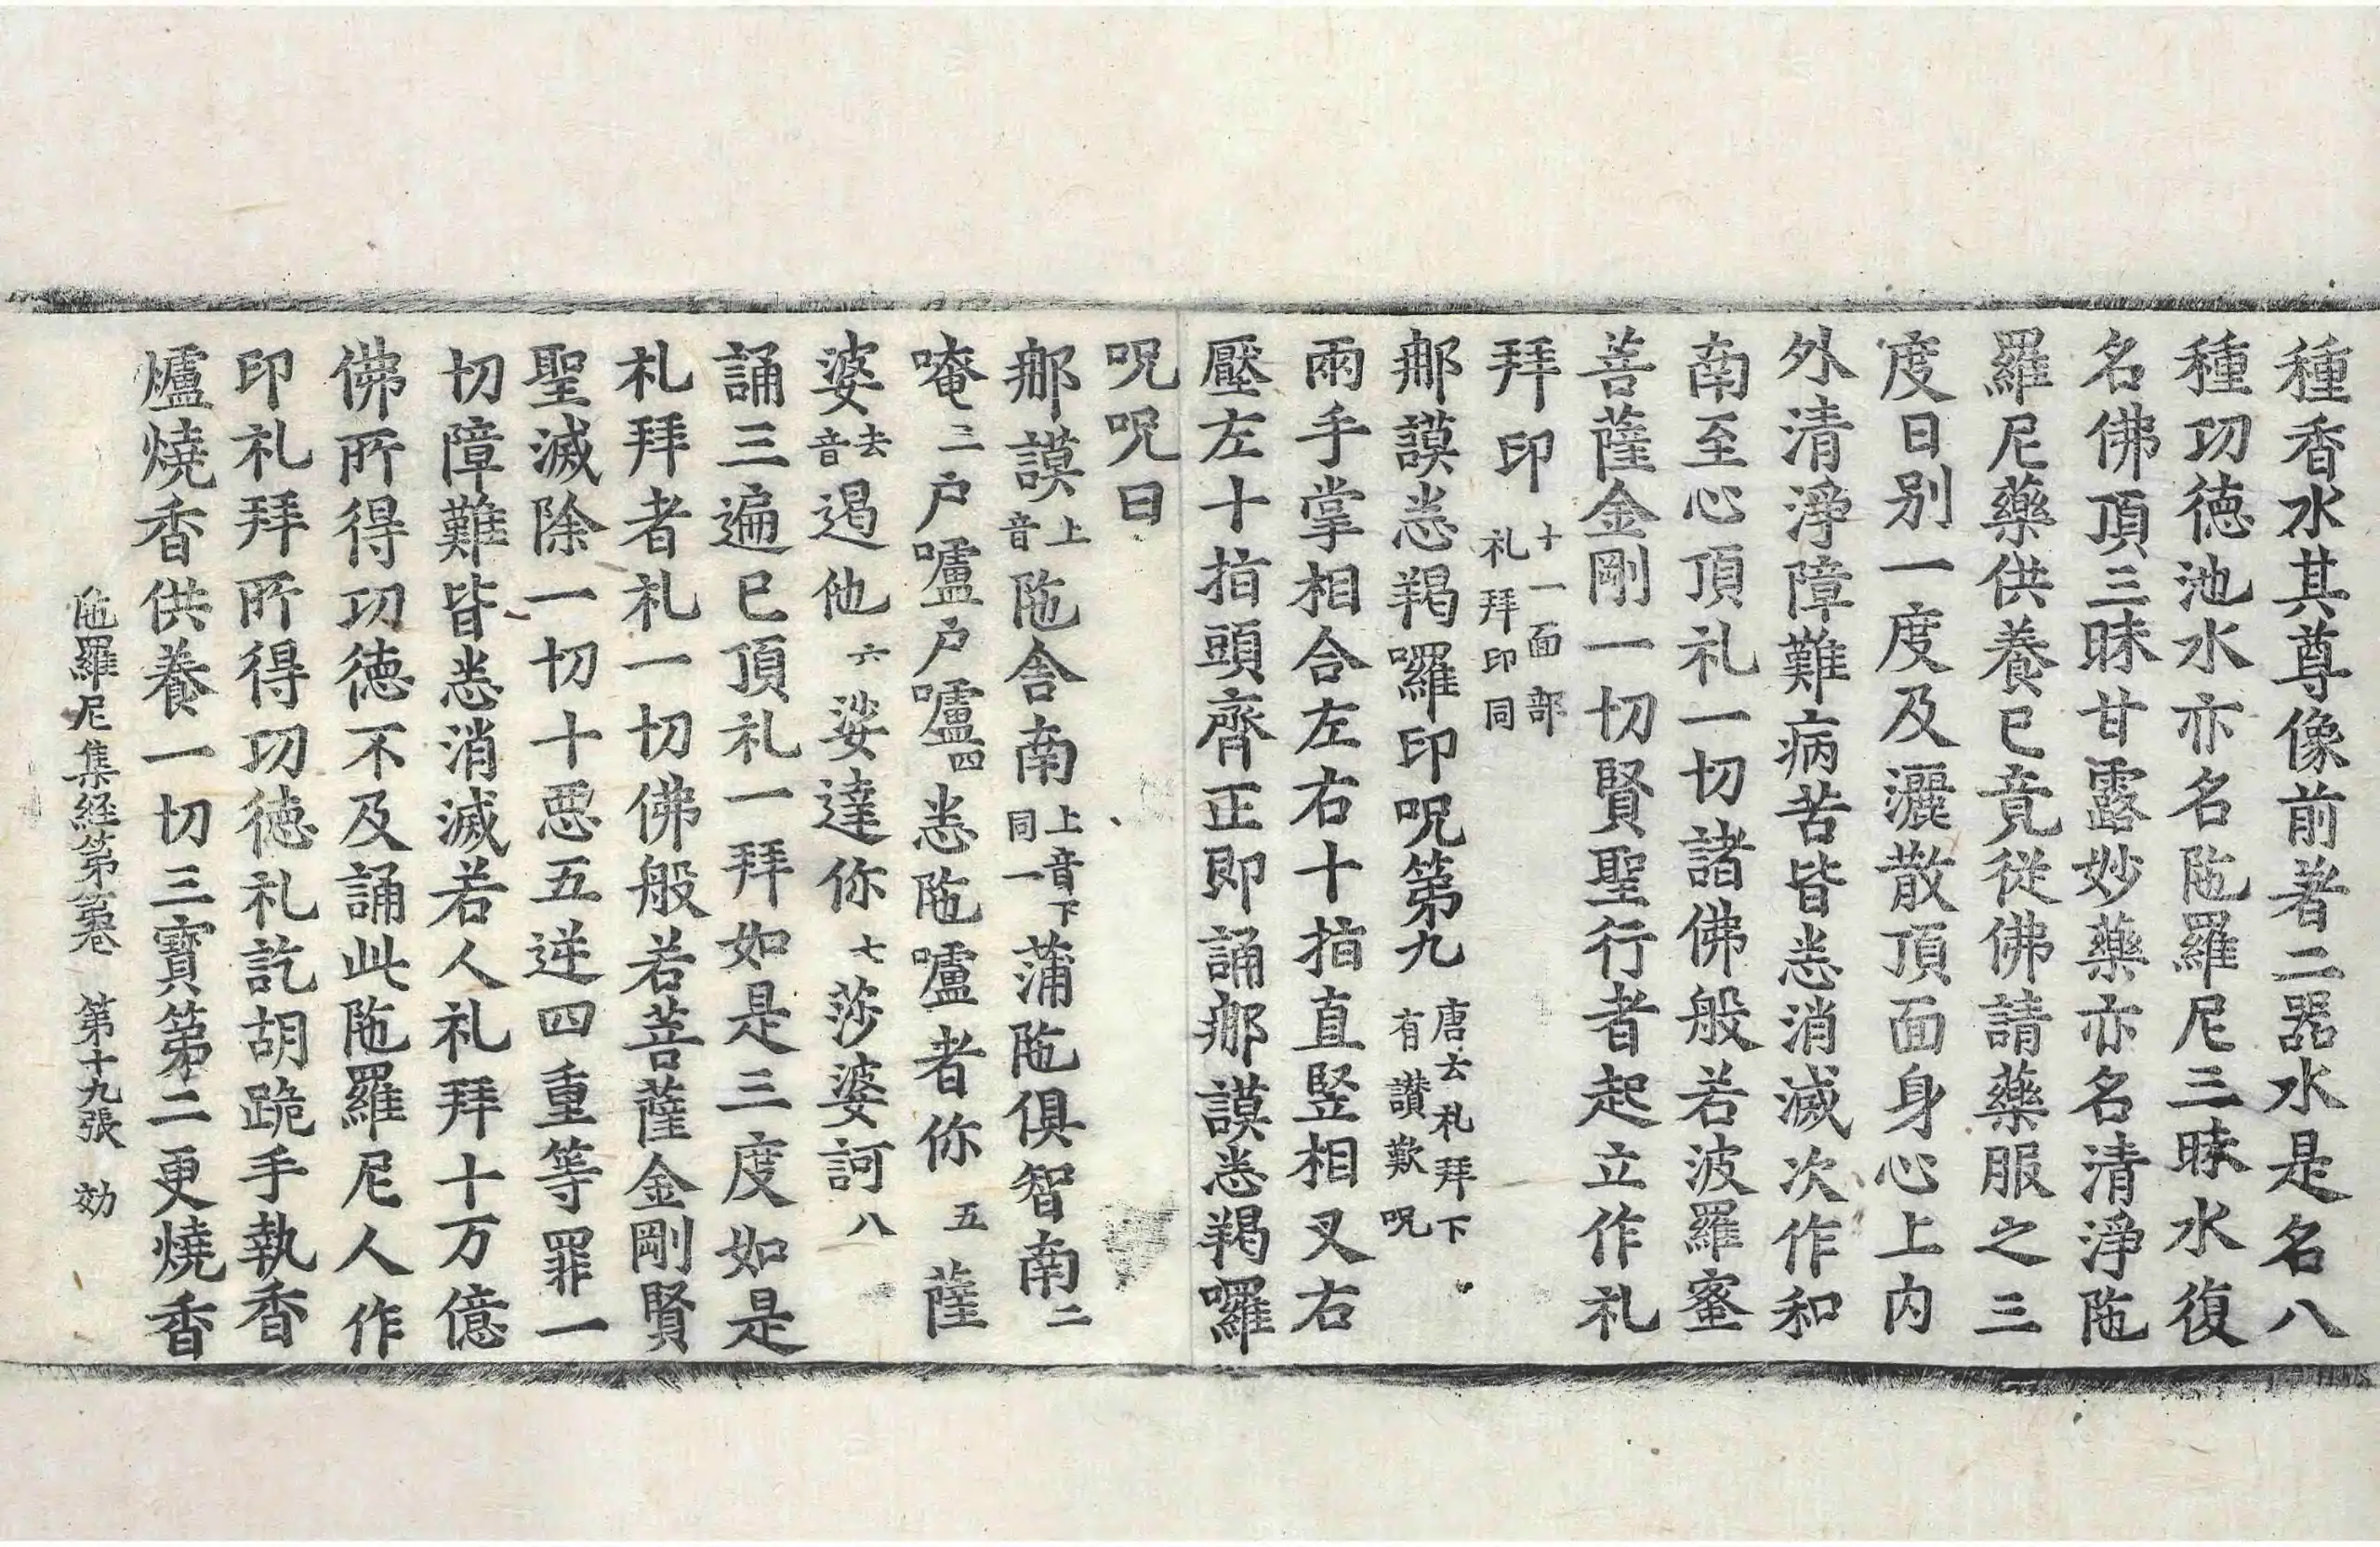 種香水其尊像前著二器水是名八
種功徳池水亦名陁羅尼三昧水復
名佛頂三昧甘露妙藥亦名清淨陁
羅尼藥供養已竟從佛請藥服之三
度日別一度及灑散頂面身心上内
外清淨障難病苦皆悉消滅次作和
南至心頂礼一切諸佛般若波羅蜜
菩薩金剛一切賢聖行者起立作礼
拜印 十一面部礼拜印同
䣕謨悉羯囉印呪第九 唐云礼拜下有讃歎呪
兩手掌相合左右十指直竪相叉右
壓左十指頭齊正即誦䣕謨悉羯囉
呪呪曰
䣕謨上音陁舍南上音下同一蒲陁俱智南二
唵三户嚧户嚧四悉陁嚧者你五薩
婆去音遏他六娑達你七莎婆訶八
誦三遍已頂礼一拜如是三度如是
礼拜者礼一切佛般若菩薩金剛賢
聖滅除一切十惡五逆四重等罪一
切障難皆悉消滅若人礼拜十万億
佛所得功徳不及誦此陁羅尼人作
印礼拜所得功徳礼訖胡跪手執香
爐燒香供養一切三寶第二更燒香
陁羅尼集経第卷 第十九張 効